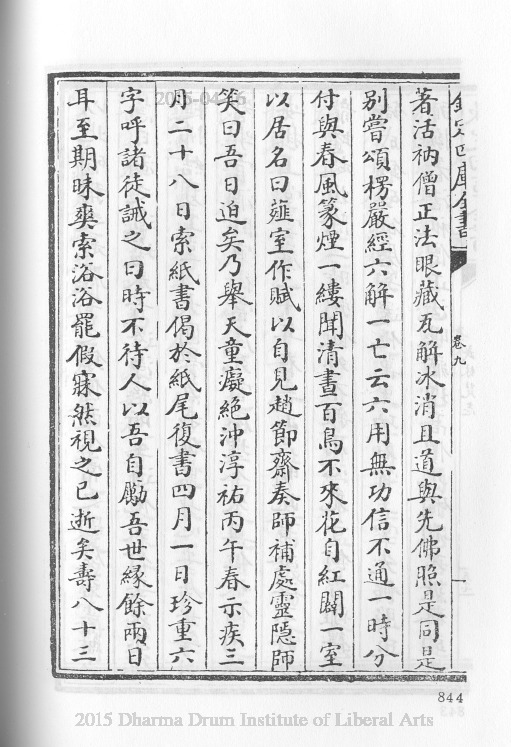 欽定四庫全書
卷九
著活衲僧正法眼藏瓦解冰消且道與先佛照是同是
別嘗頌楞嚴經六解一亡云六用無功信不通一時分
付與春風篆煙一縷聞清晝百鳥不來花自紅闢一室
以居名曰薤室作賦以自見趙節齋奏師補處靈隱師
笑曰吾日迫矣乃舉天童癡絕沖淳祐丙午春示疾三
月二十八日索紙書偈於紙尾復書四月一日珍重六
字呼諸徒誡之曰時不待人以吾自勵吾世緣餘兩日
耳至期昧爽索浴浴罷假寐然視之已逝矣壽八十三
844
2015 Dharma Drum Institute of Liberal Arts